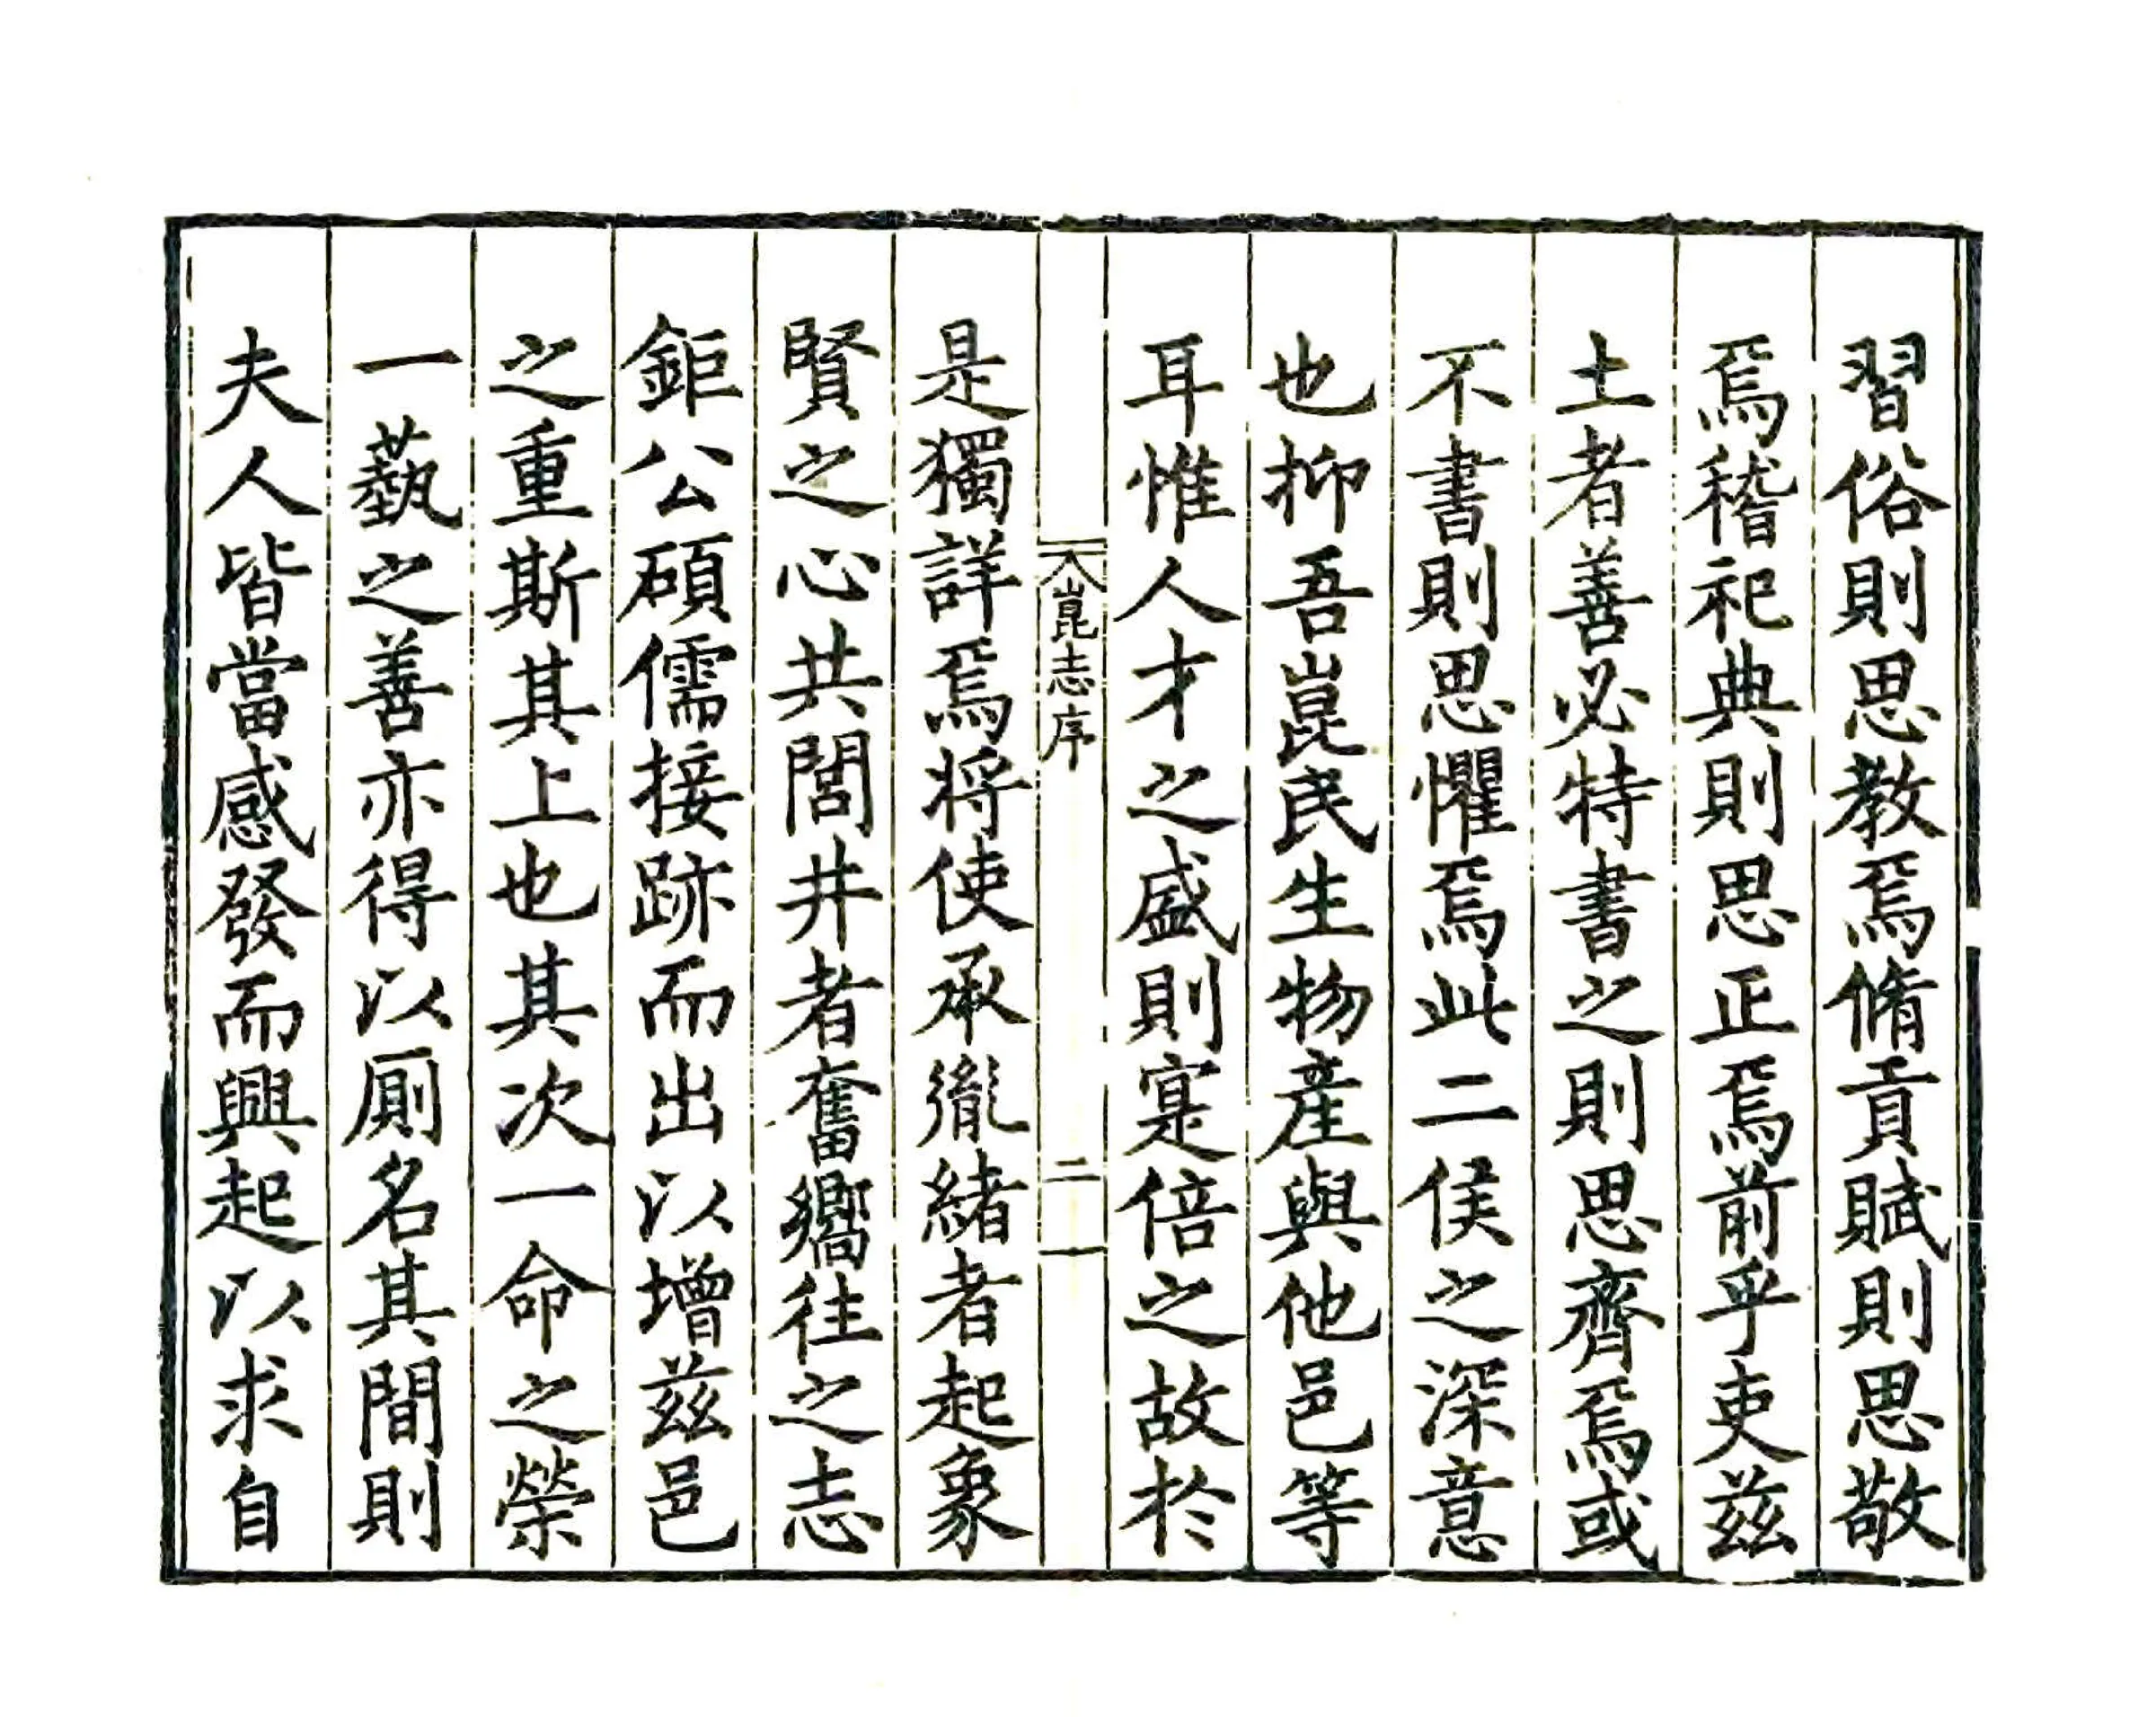 習俗則思教焉脩貢賦則思敬
焉稽祀典則思正焉前乎吏兹
土者善必特書之則思齊焉或
不書則思懼焉此二侯之深意
也抑吾崑民生物產與他邑等
耳惟人才之盛則寔倍之故於
崑志序
二
是獨詳焉將使承胤緒者起象
賢之心共閭井者奮嚮往之志
鉅公碩儒接跡而出以增兹邑
之重斯其上也其次一命之榮
一藝之善亦得以厠名其間則
夫人皆當感發而興起以求自